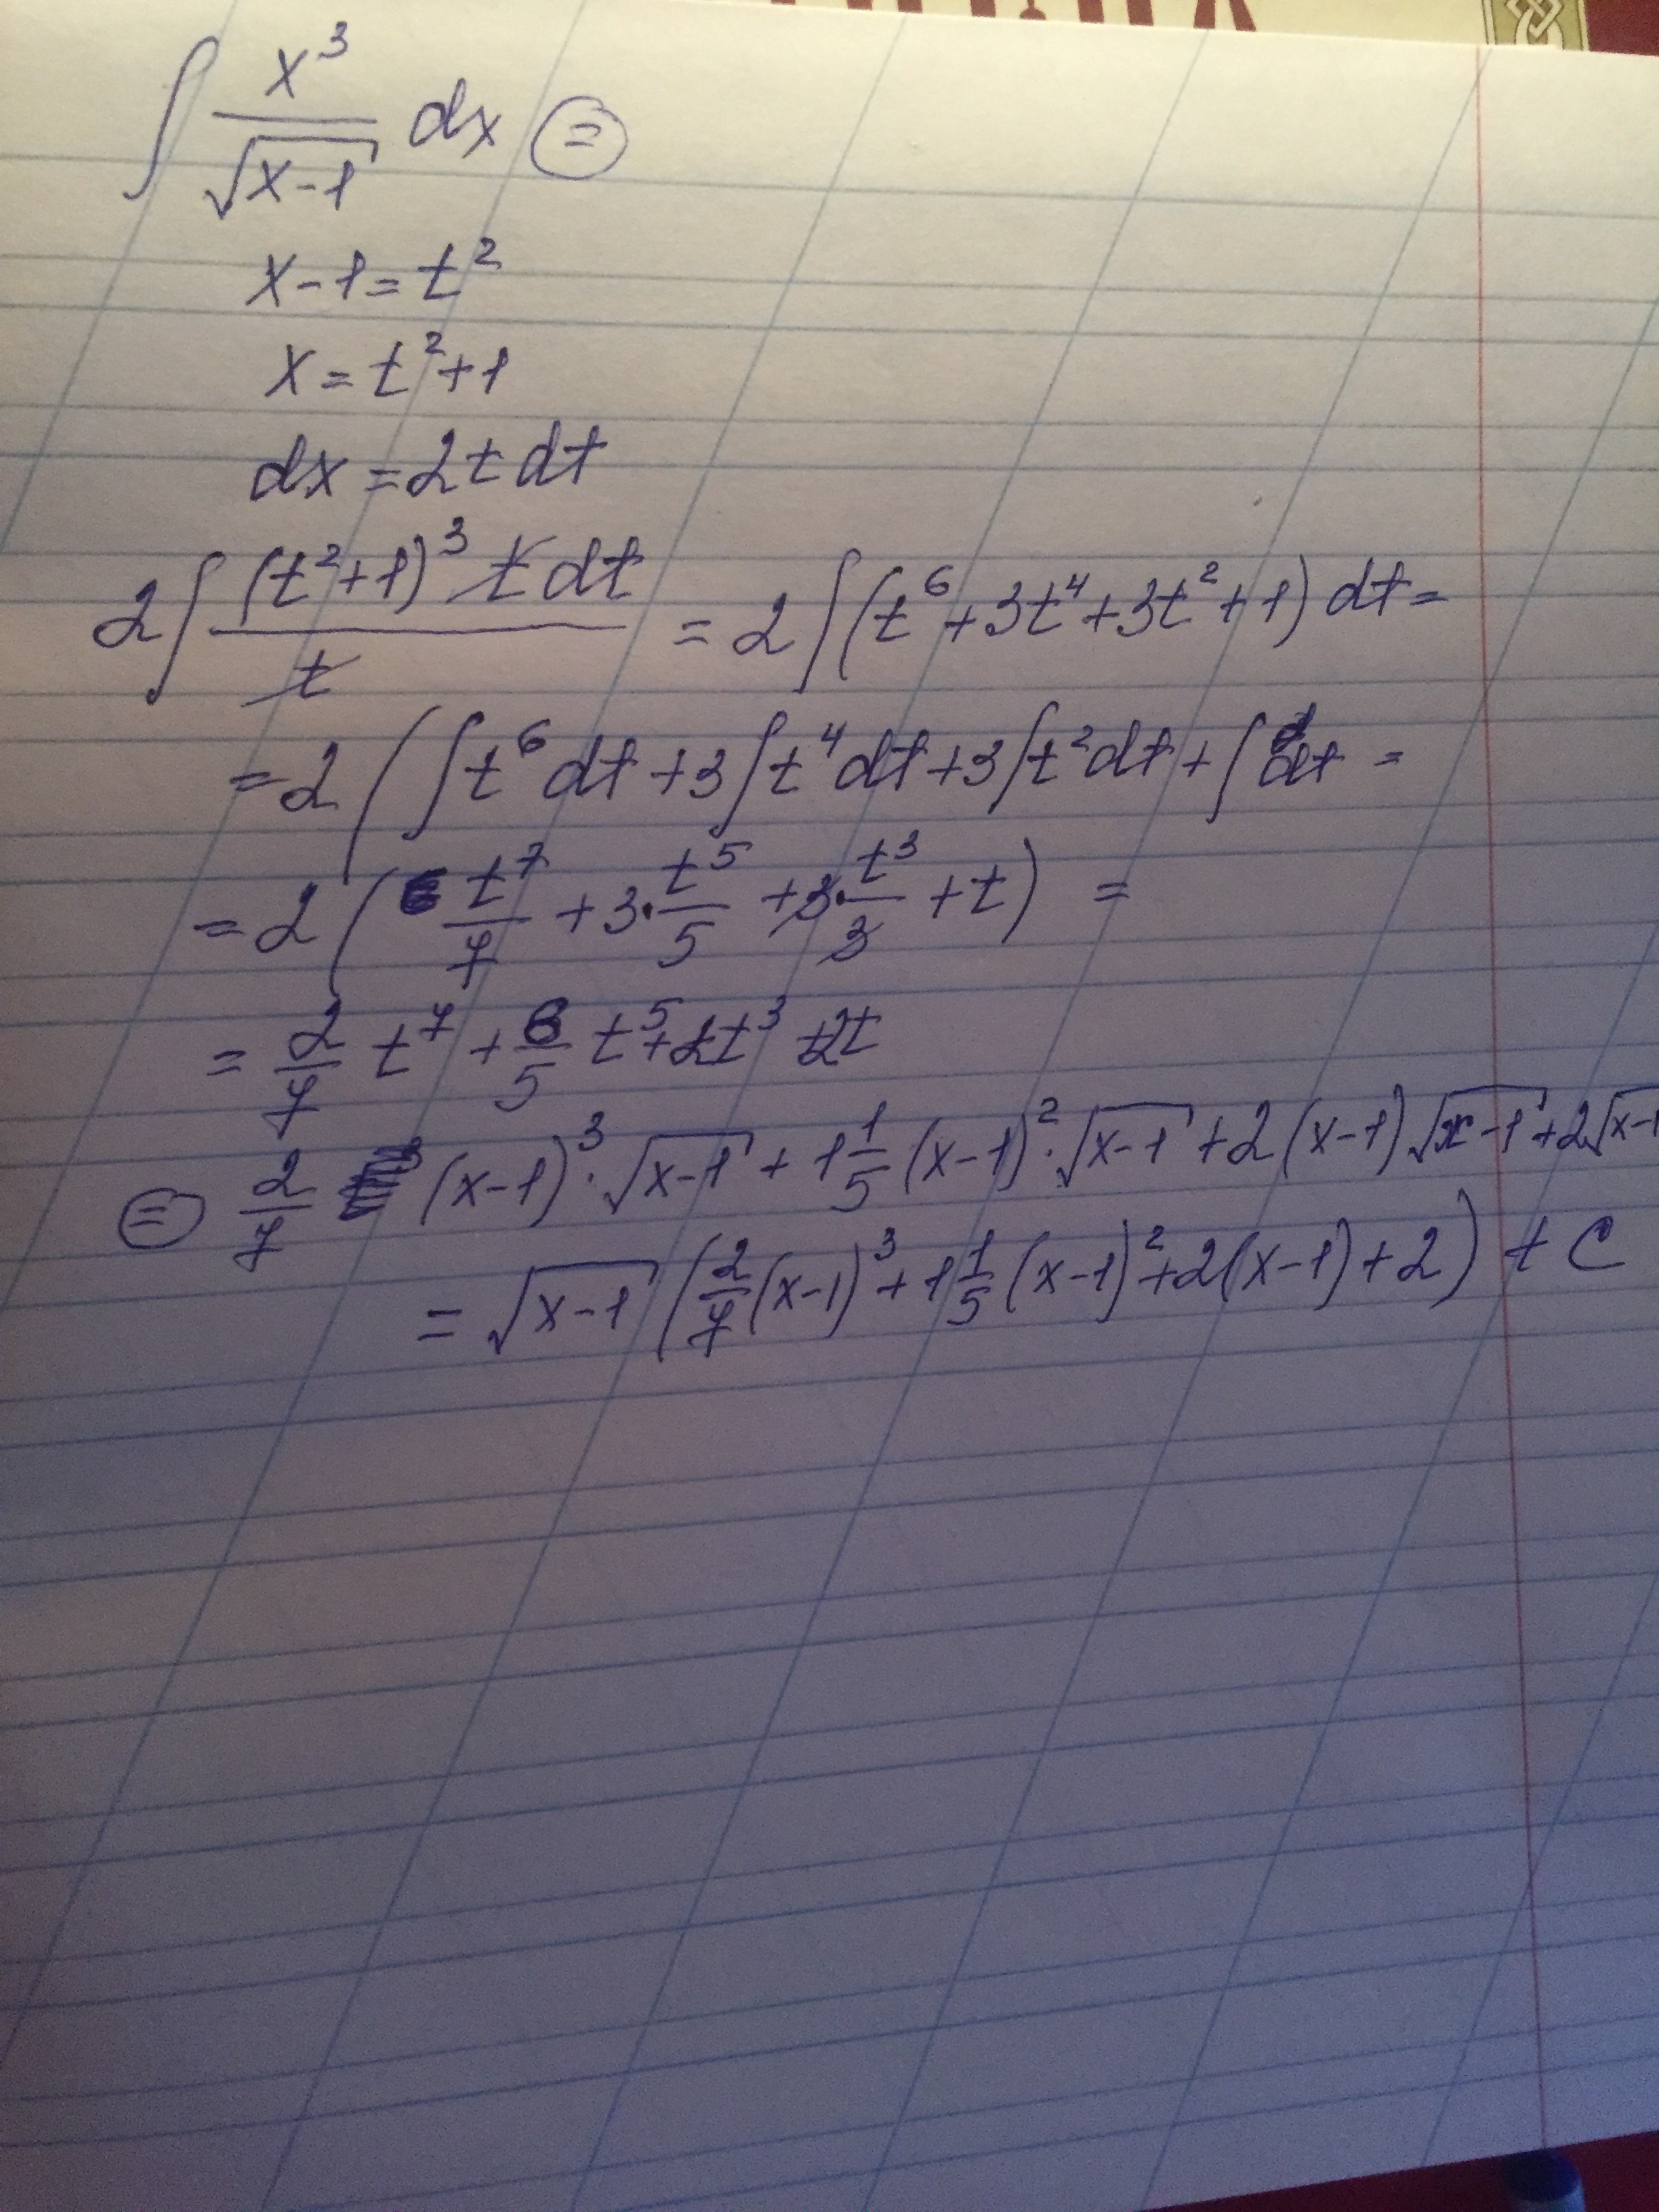 ∫ x³/√(x-1) dx (=)
x-1=t²
x=t²+1
dx=2t dt
2∫ (t²+1)³ t dt / t = 2∫(t⁶+3t⁴+3t²+1) dt=
=2(∫t⁶dt+3∫t⁴dt+3∫t²dt+∫dt =
=2( t⁷/7 +3·t⁵/5 +3·t³/3 +t) =
= 2/7 t⁷ + 6/5 t⁵+2t³+2t
(=) 2/7 (x-1)³·√(x-1) + 1 1/5 (x-1)²·√(x-1) +2(x-1)√(x-1)+2√(x-1
= √(x-1) (2/7(x-1)³+1 1/5(x-1)²+2(x-1)+2) + C